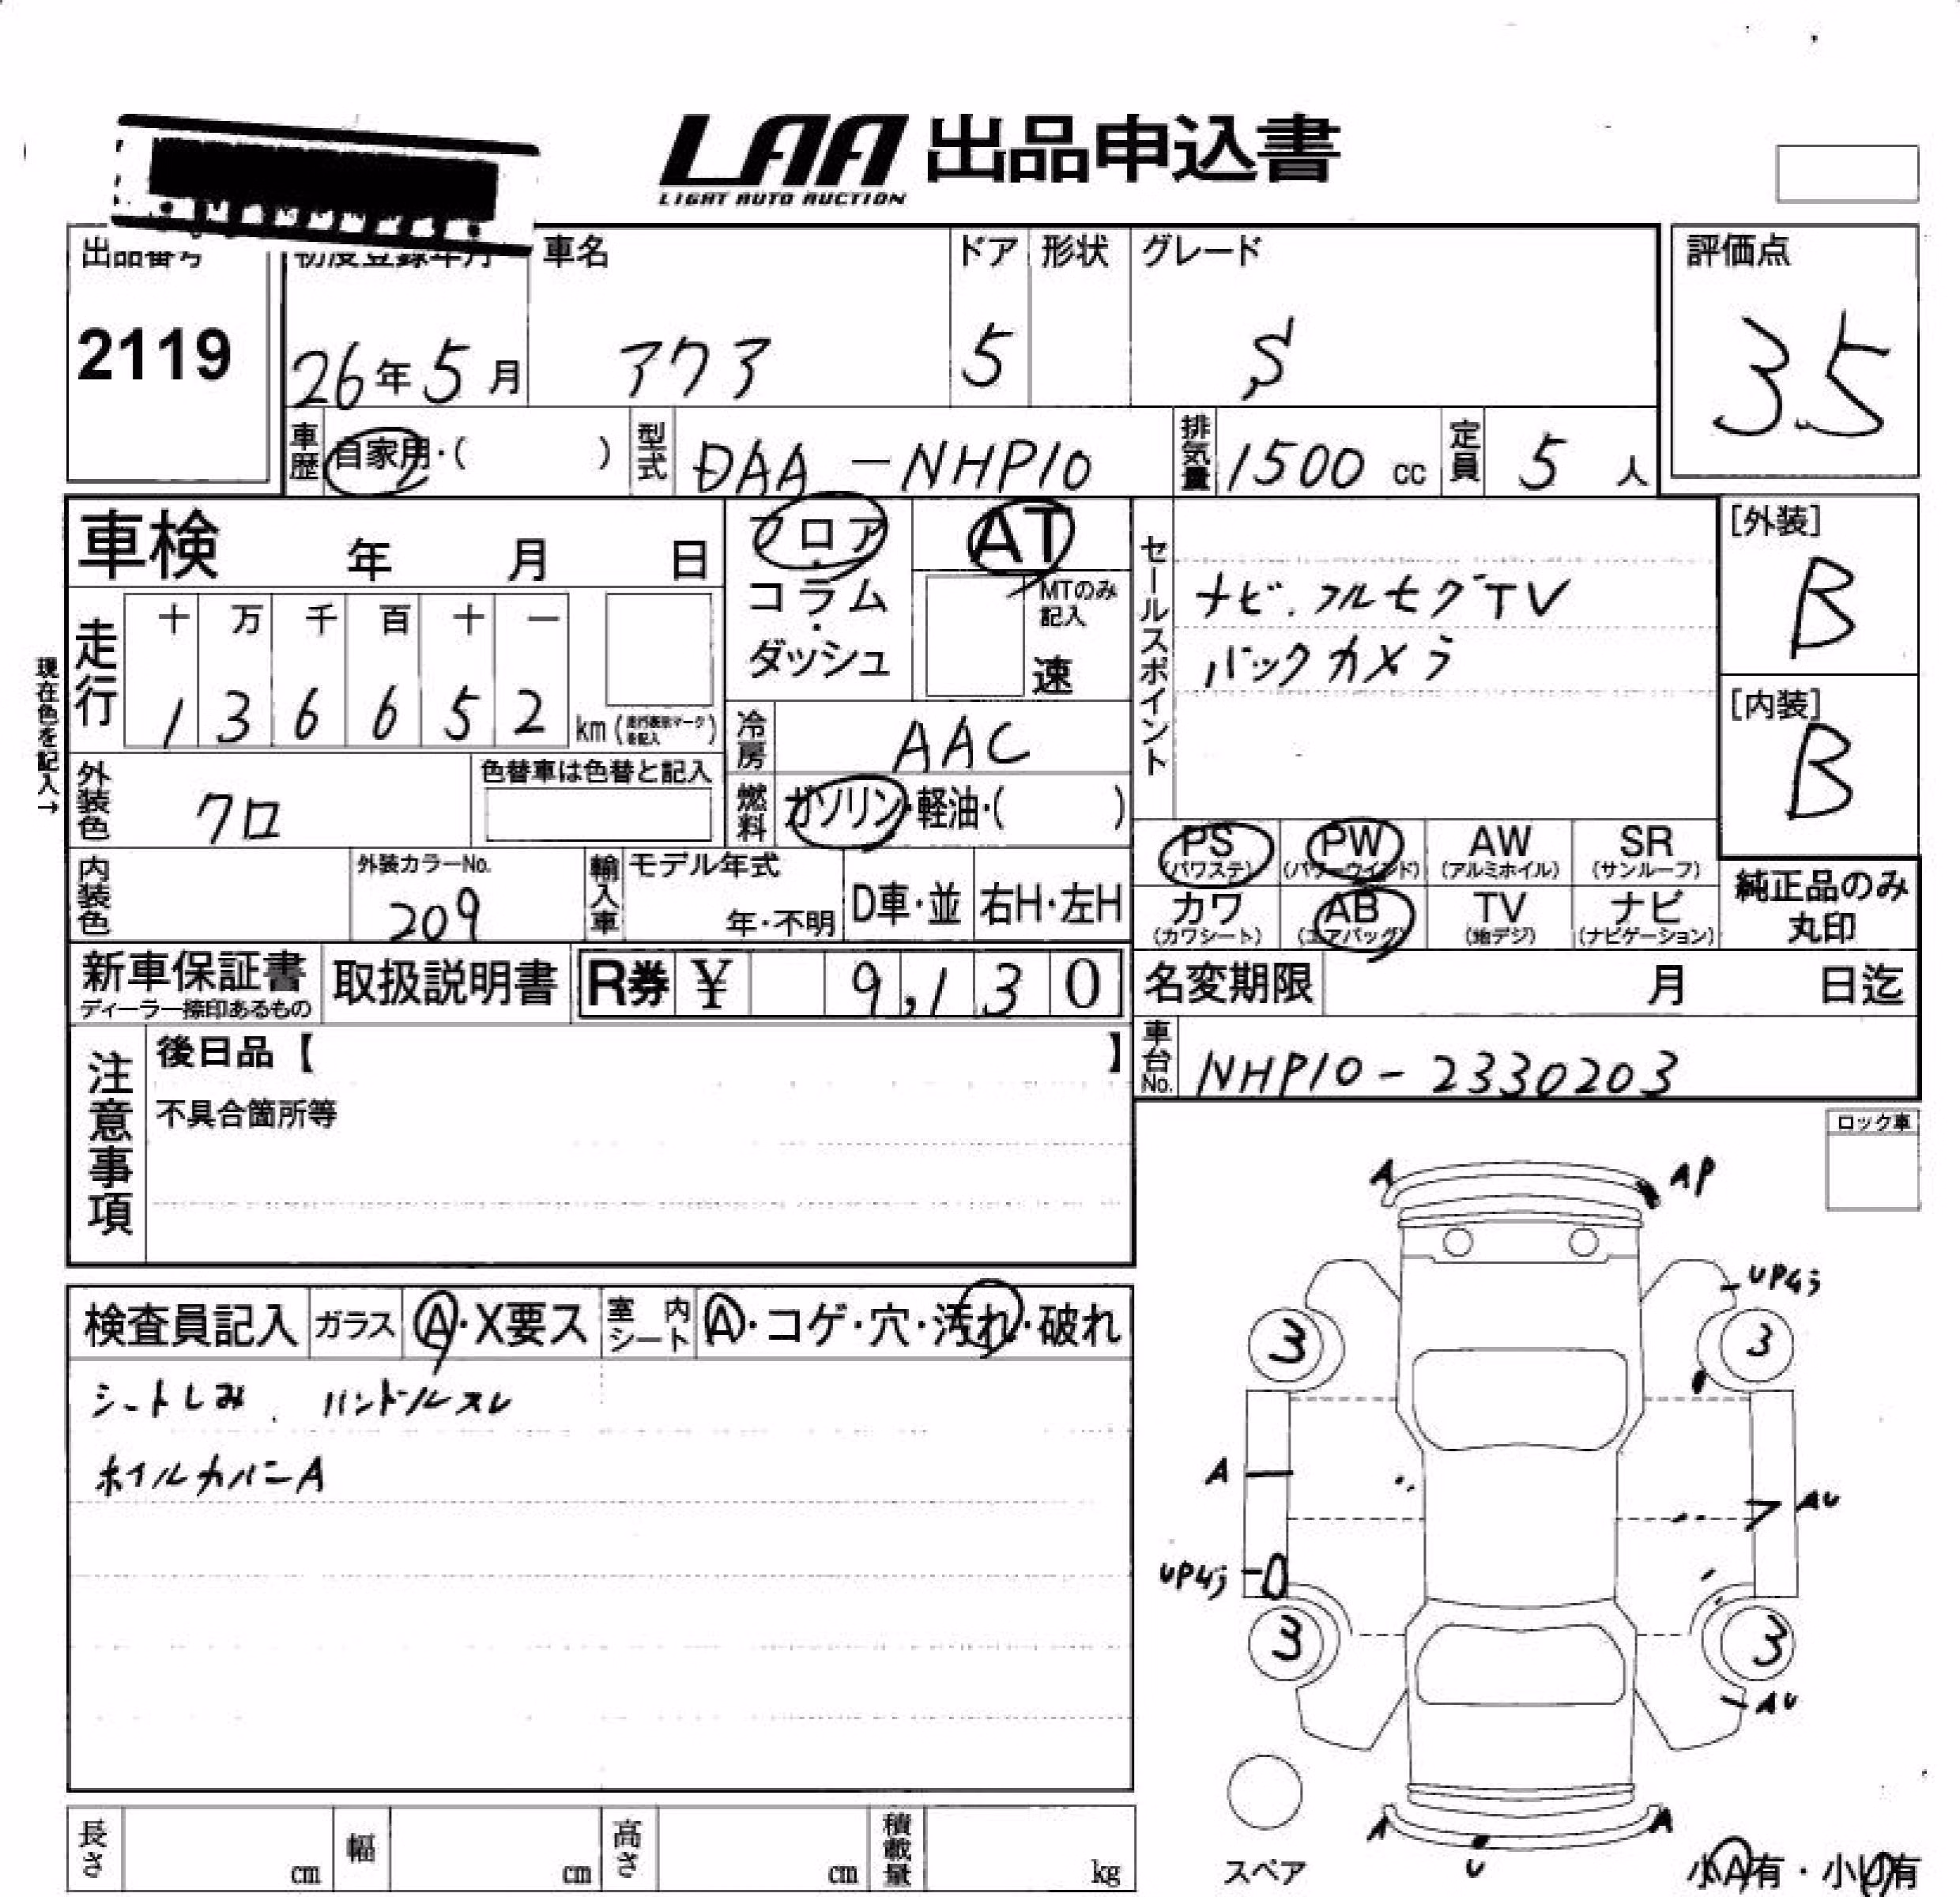 LAA 出品申込書
LIGHT AUTO AUCTION
出品番号 初度登録年月 車名 ドア 形状 グレード 評価点
2119 26年5月 アクア 5 S 3.5
車歴 自家用・( ) 型式 DAA-NHP10 排気量 1500 cc 定員 5 人
車検 年 月 日
フロア・コラム・ダッシュ
AT
MTのみ記入
速
セールスポイント
ナビ.フルセグTV
バックカメラ
[外装]
B
[内装]
B
現在色を記入→
走行 十 万 千 百 十 一
1 3 6 6 5 2 km (走行表示マークを記入)
冷房 AAC
外装色 クロ 色替車は色替と記入
燃料 ガソリン・軽油・( )
PS (パワステ) PW (パワーウインド) AW (アルミホイル) SR (サンルーフ)
カワ (カワシート) AB (エアバッグ) TV (地デジ) ナビ (ナビゲーション)
純正品のみ
丸印
内装色 外装カラーNo. 209 輸入車 モデル年式 年・不明 D車・並 右H・左H
新車保証書 取扱説明書 R券 ¥ 9,130
ディーラー捺印あるもの
名変期限 月 日迄
車台No. NHP10-2330203
注意事項
後日品【 】
不具合箇所等
ロック車
検査員記入 ガラス A・X要ス 室内シート A・コゲ・穴・汚れ・破れ
シートしみ. ハンドルスレ
ホイルカバーA
A AP
UP4j
3 3
A
AU
UP4j
3 3
AU
A A
U
スペア
小A有・小U有
長さ cm 幅 cm 高さ cm 積載量 kg